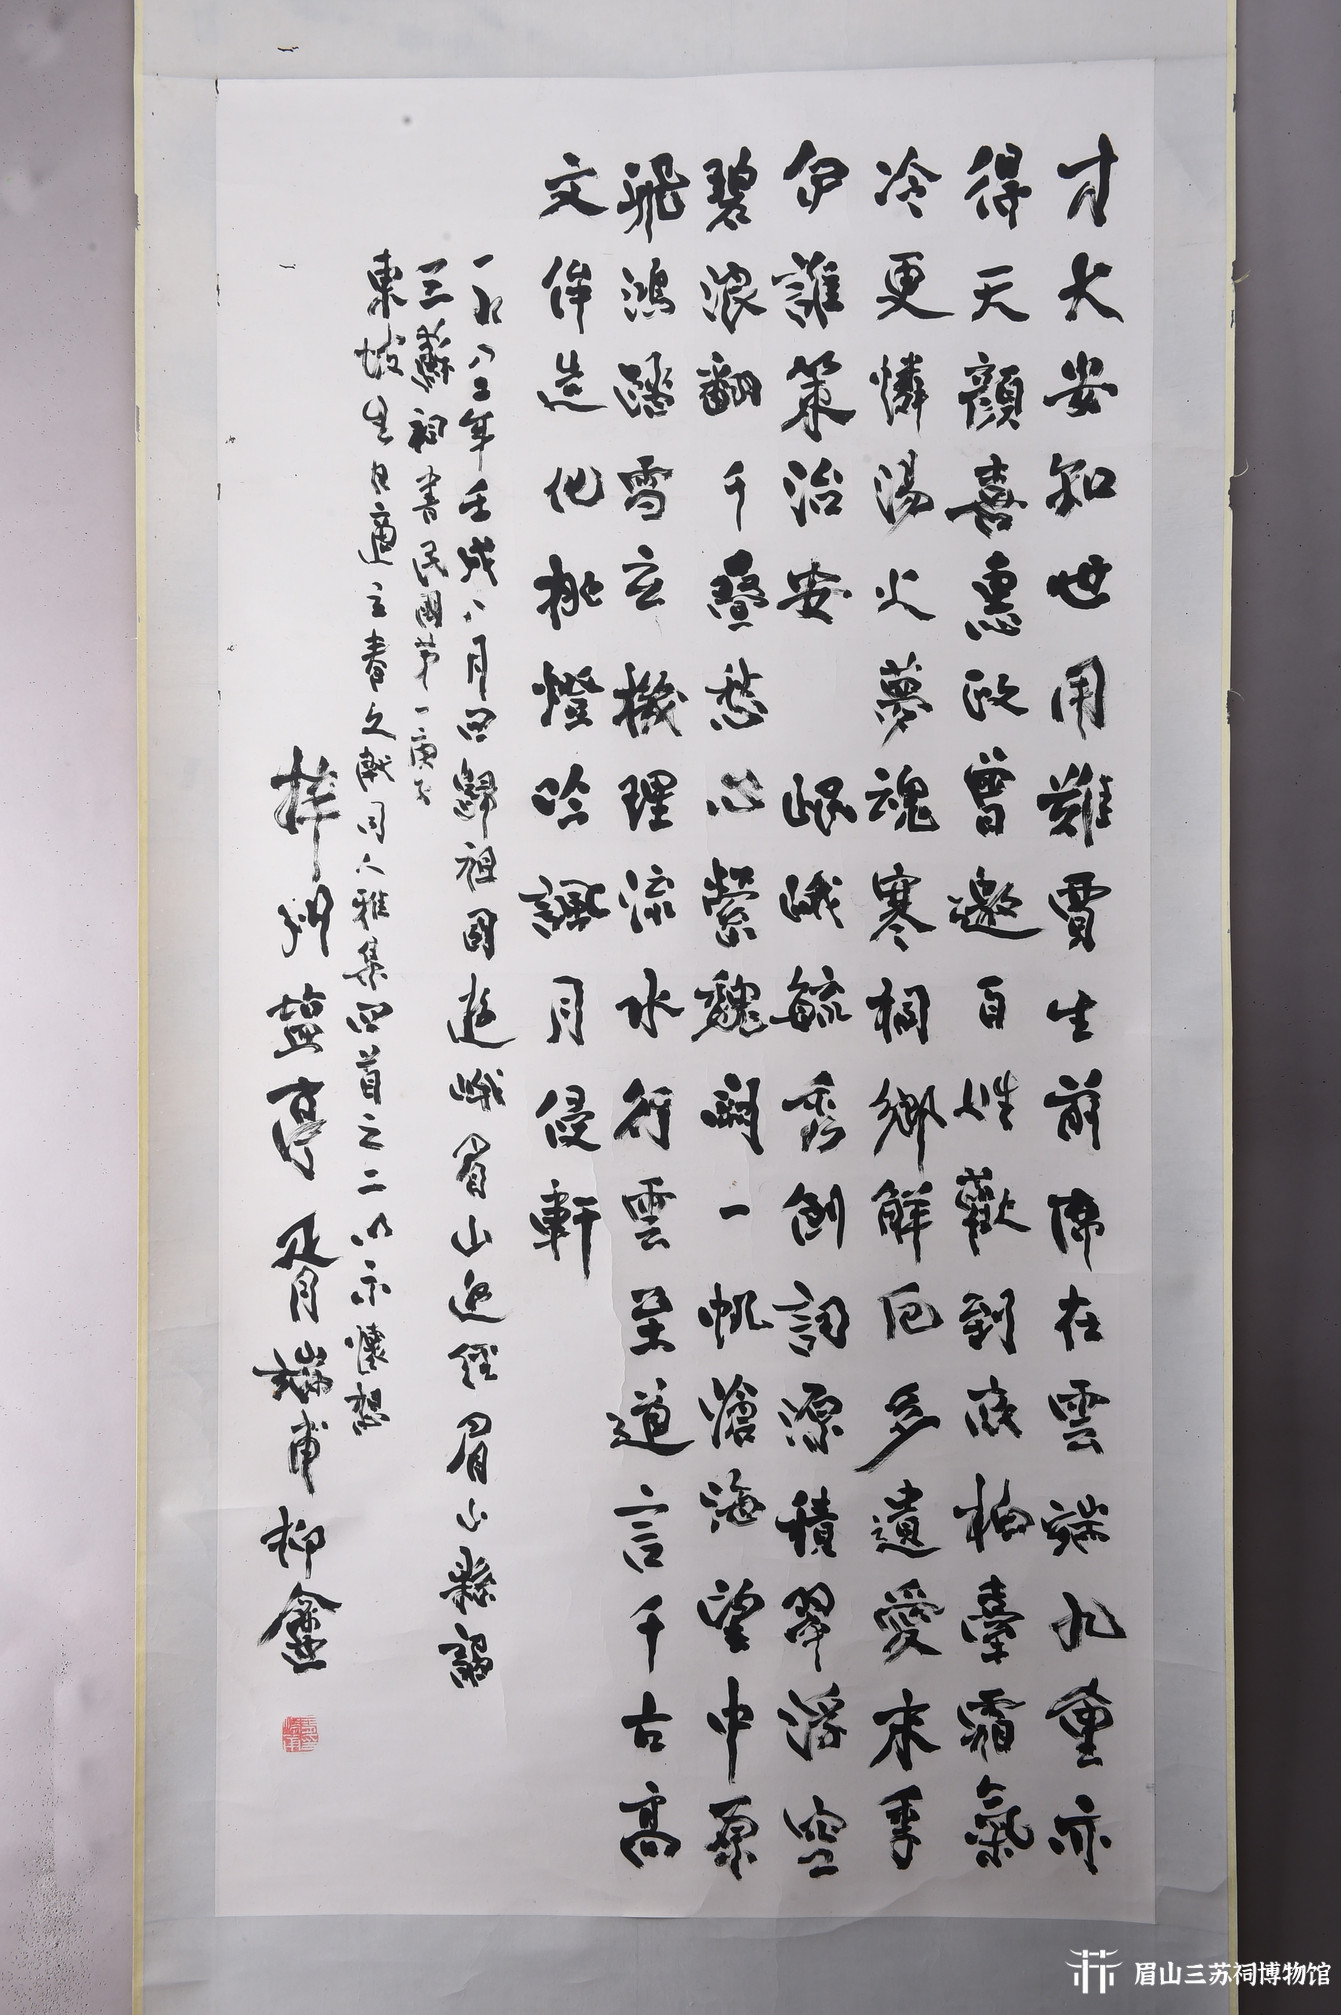 才大安知世用難賈生前席在雲端九重亦
得天顏喜惠政曾邀百姓歡到底柏臺霜氣
冷更憐湯火夢魂寒桐鄉解厄多遺愛末季
伊誰策治安　岷峨毓秀創詞源積翠浮空
碧浪翻千疊愁心縈魏闕一帆滄海望中原
飛鴻踏雪玄機理流水行雲至道言千古高
文侔造化挑燈吟諷月侵軒
一九八二年壬戌八月回歸祖國遊峨眉山過經眉山縣謁
三蘇祠書民國第一庚子
東坡生日適立春文獻同人雅集四首之二以示懷想
梓州鹽亭 瑞甫
眉山三苏祠博物馆